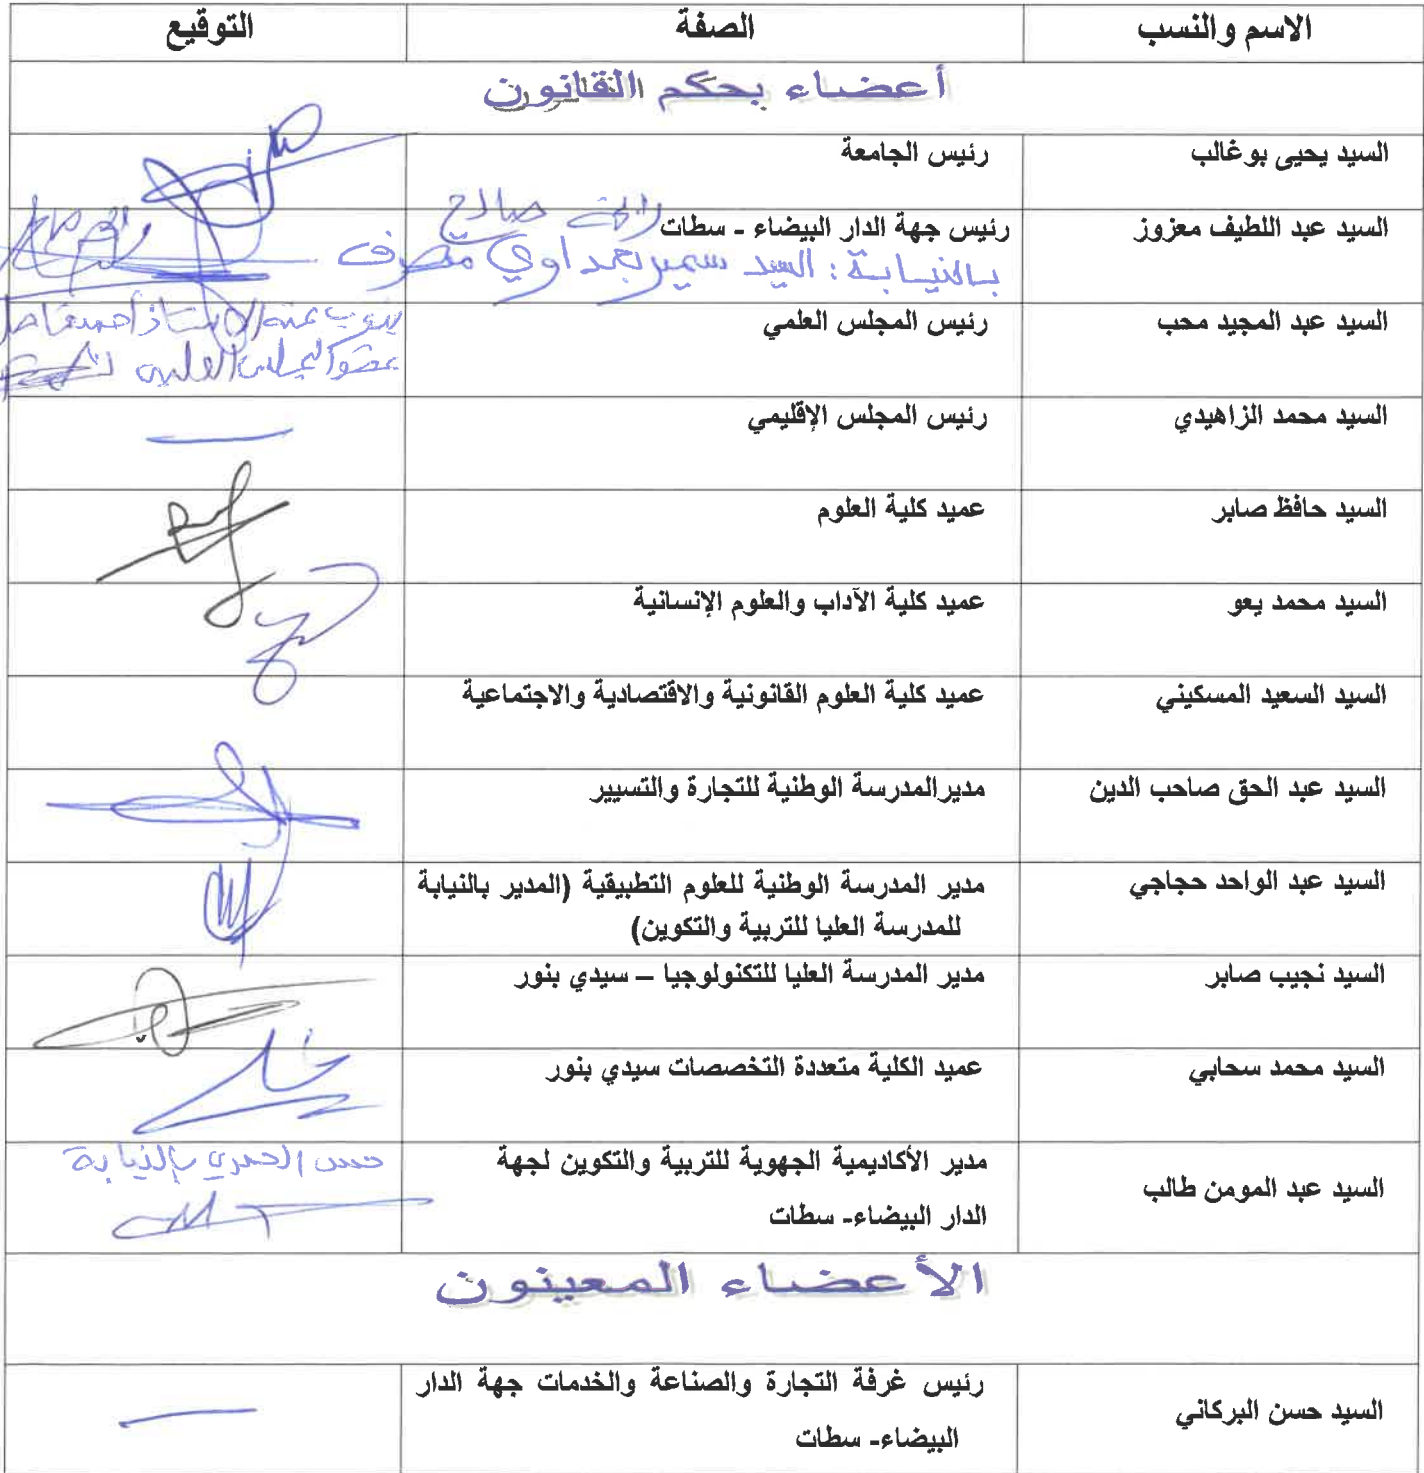 الاسم والنسب الصفة التوقيع
أعضاء بحكم القانون
السيد يحيى بوغالب رئيس الجامعة
السيد عبد اللطيف معزوز رئيس جهة الدار البيضاء - سطات صالح
بالنيابة : السيد سمير
السيد عبد المجيد محب رئيس المجلس العلمي ينوب عنه الأستاذ أحمد
عضو المجلس العلمي
السيد محمد الزاهيدي رئيس المجلس الإقليمي
السيد حافظ صابر عميد كلية العلوم
السيد محمد يعو عميد كلية الآداب والعلوم الإنسانية
السيد السعيد المسكيني عميد كلية العلوم القانونية والاقتصادية والاجتماعية
السيد عبد الحق صاحب الدين مديرالمدرسة الوطنية للتجارة والتسيير
السيد عبد الواحد حجاجي مدير المدرسة الوطنية للعلوم التطبيقية (المدير بالنيابة
للمدرسة العليا للتربية والتكوين)
السيد نجيب صابر مدير المدرسة العليا للتكنولوجيا – سيدي بنور
السيد محمد سحابي عميد الكلية متعددة التخصصات سيدي بنور
السيد عبد المومن طالب مدير الأكاديمية الجهوية للتربية والتكوين لجهة
الدار البيضاء- سطات
حسن الحمري بالنيابة
الأعضاء المعينون
السيد حسن البركاني رئيس غرفة التجارة والصناعة والخدمات جهة الدار
البيضاء- سطات